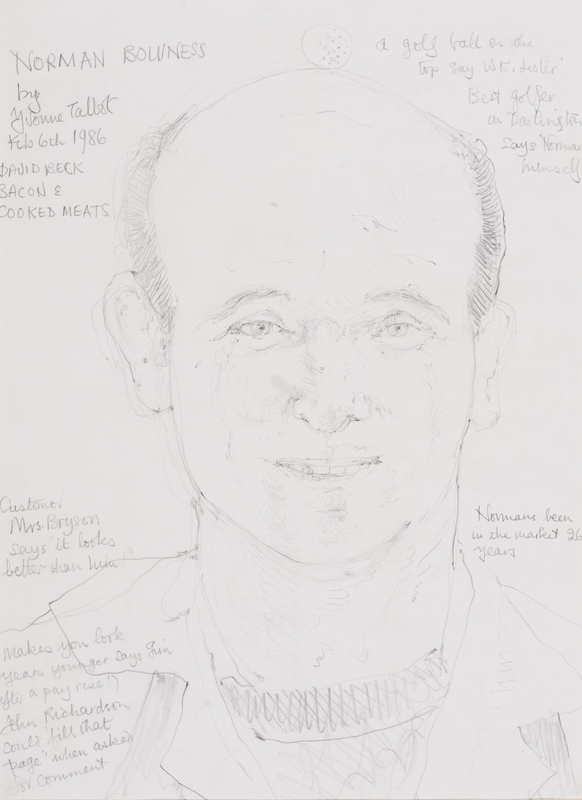 NORMAN BOWNESS
by
Yvonne Talbot
Feb 6th 1986
DAVID BECK
BACON &
COOKED MEATS
a golf ball on the
top say WK. Lister'
Best golfer
in Darlington
says Norman
himself
Customer
Mrs. Bryson
says "it looks
better than him"
Normans been
in the market 26
years
Makes you look
years younger says Jim
after a pay rise!)
John Richardson
could "fill that
page" when asked
comment